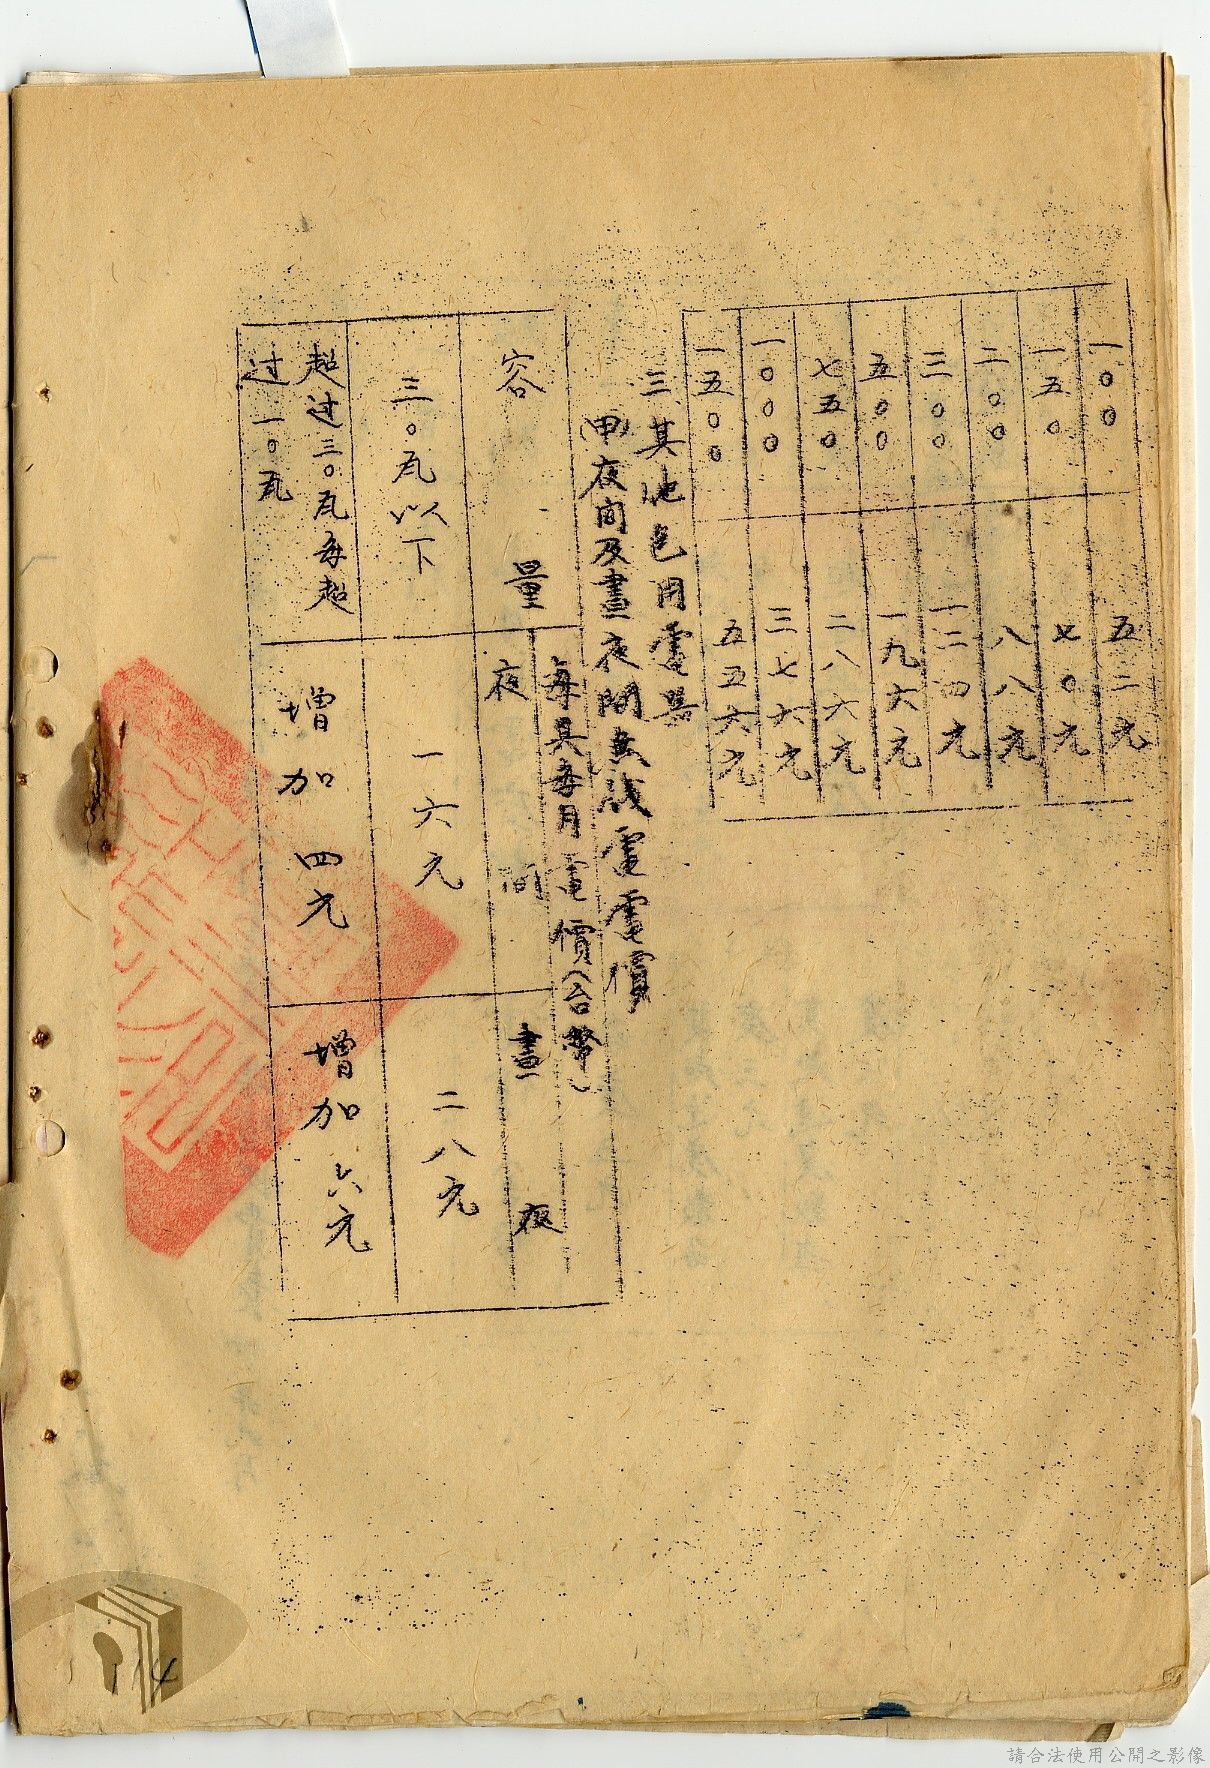 一〇〇 五二元
一五〇 七〇元
二〇〇 八八元
三〇〇 一二四元
五〇〇 一九六元
七五〇 二八六元
一〇〇〇 三七六元
一五〇〇 五五六元
三、其他包用電器
(甲)夜間及晝夜間無线電電價
容量 每具每月電價(台幣)
夜間 晝夜
三〇瓦以下 一六元 二八元
超过三〇瓦每超
过一〇瓦 增加四元 增加六元
114
請合法使用公開之影像